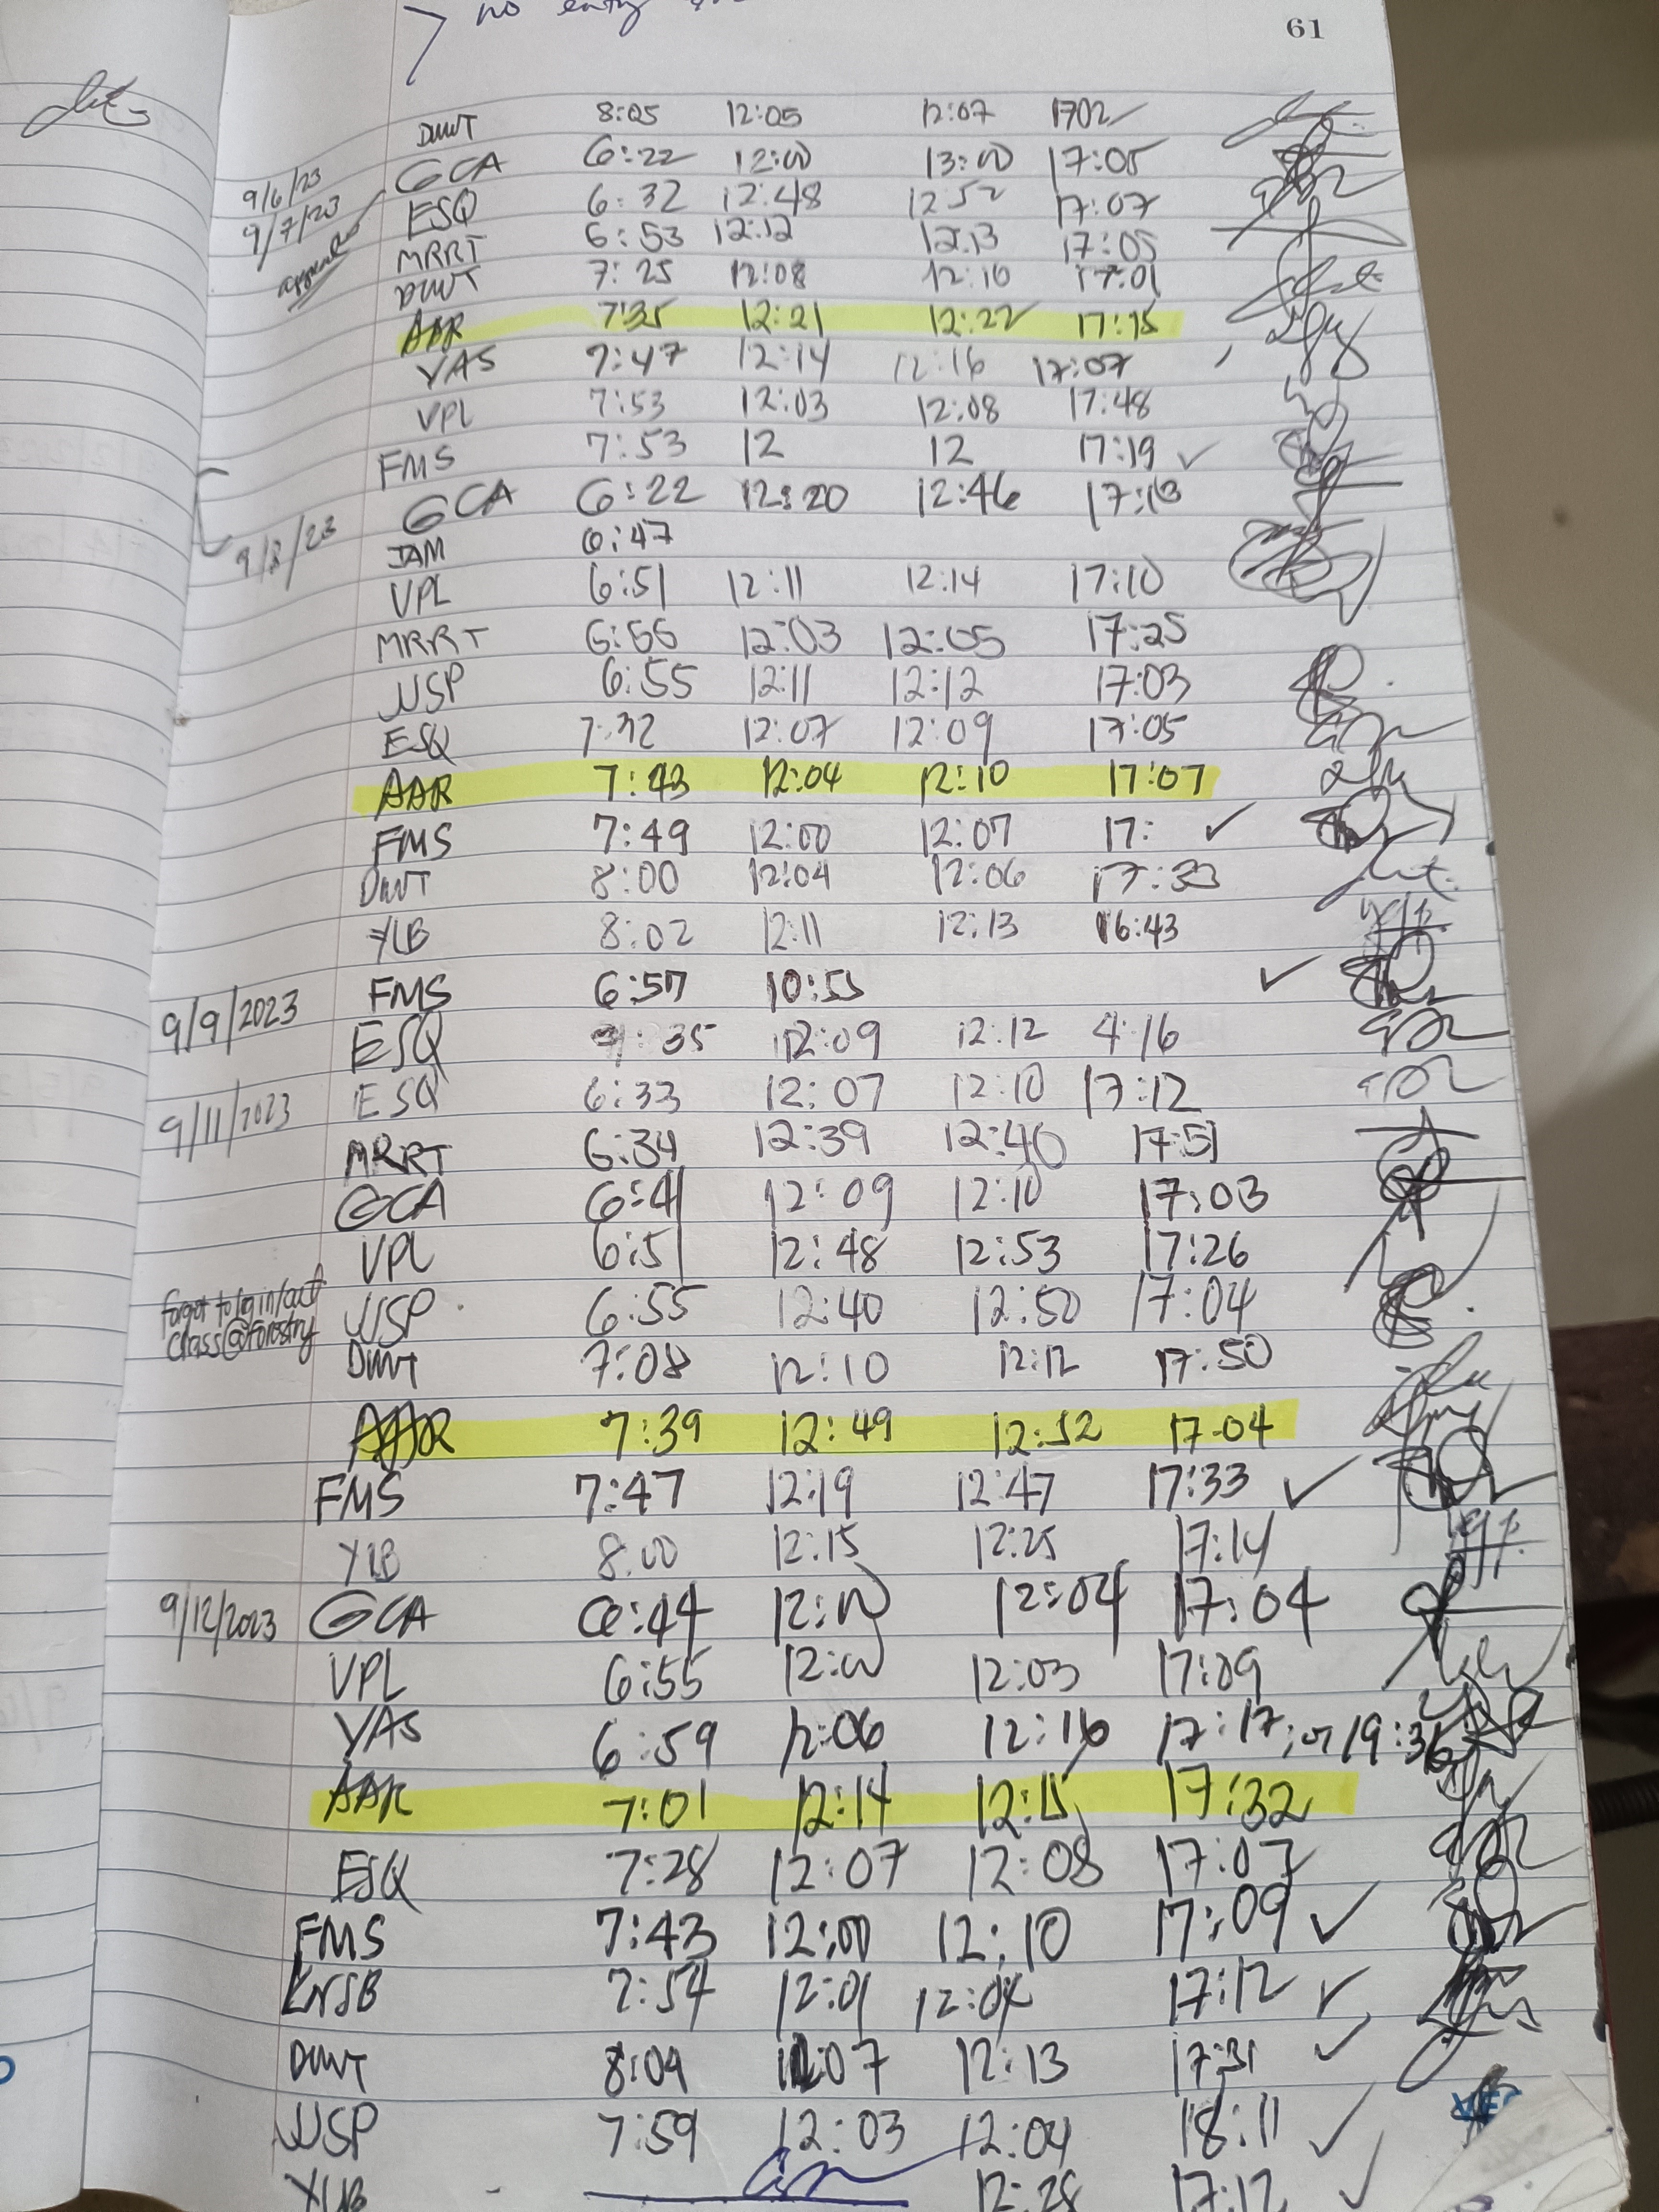 no entry
61
DMVT 8:05 12:05 12:07 1702
9/6/23 GCA 6:22 12:00 13:00 17:05
9/7/23 ESQ 6:32 12:48 12 52 17:07
MRRT 6:53 12:12 12:13 17:05
DMVT 7:25 12:08 12:10 17:01
AAR 7:35 12:21 12:22 17:15
YAS 7:47 12:14 12:16 17:07
VPL 7:53 12:03 12:08 17:48
FMS 7:53 12 12 17:19 ✓
9/8/23 GCA 6:22 12:20 12:46 17:13
JAM 6:47
VPL 6:51 12:11 12:14 17:10
MRRT 6:56 12:03 12:05 17:25
JJSP 6:55 12:11 12:12 17:03
ESQ 7:32 12:07 12:09 17:05
AAR 7:43 12:04 12:10 17:07
FMS 7:49 12:00 12:07 17: ✓
DMVT 8:00 12:04 12:06 17:33
YLB 8:02 12:11 12:13 16:43
9/9/2023 FMS 6:57 10:55 ✓
ESQ 12:09 12:12 4:16
9/11/2023 ESQ 6:33 12:07 12:10 17:12
MRRT 6:34 12:39 12:40 17:51
GCA 6:41 12:09 12:10 17:03
VPL 6:51 12:48 12:53 17:26
forgot to log in/out
class@forestry
JJSP 6:55 12:40 12:50 17:04
DMVT 7:08 12:10 12:12 17:50
AAR 7:39 12:49 12:52 17:04
FMS 7:47 12:19 12:47 17:33 ✓
YLB 8:00 12:15 12:25 17:14
9/12/2023 GCA 6:44 12:00 12:04 17:04
VPL 6:55 12:00 12:03 17:09
YAS 6:59 12:06 12:16 17:17; 19:36
AAR 7:01 12:14 12:15 17:32
ESQ 7:28 12:07 12:08 17:07
FMS 7:43 12:00 12:10 17:09 ✓
7:54 12:01 12:04 17:12 ✓
DMVT 8:09 12:07 12:13 17:31 ✓
JJSP 7:59 12:03 12:04 18:11 ✓
YLB - 12:28 17:12 ✓